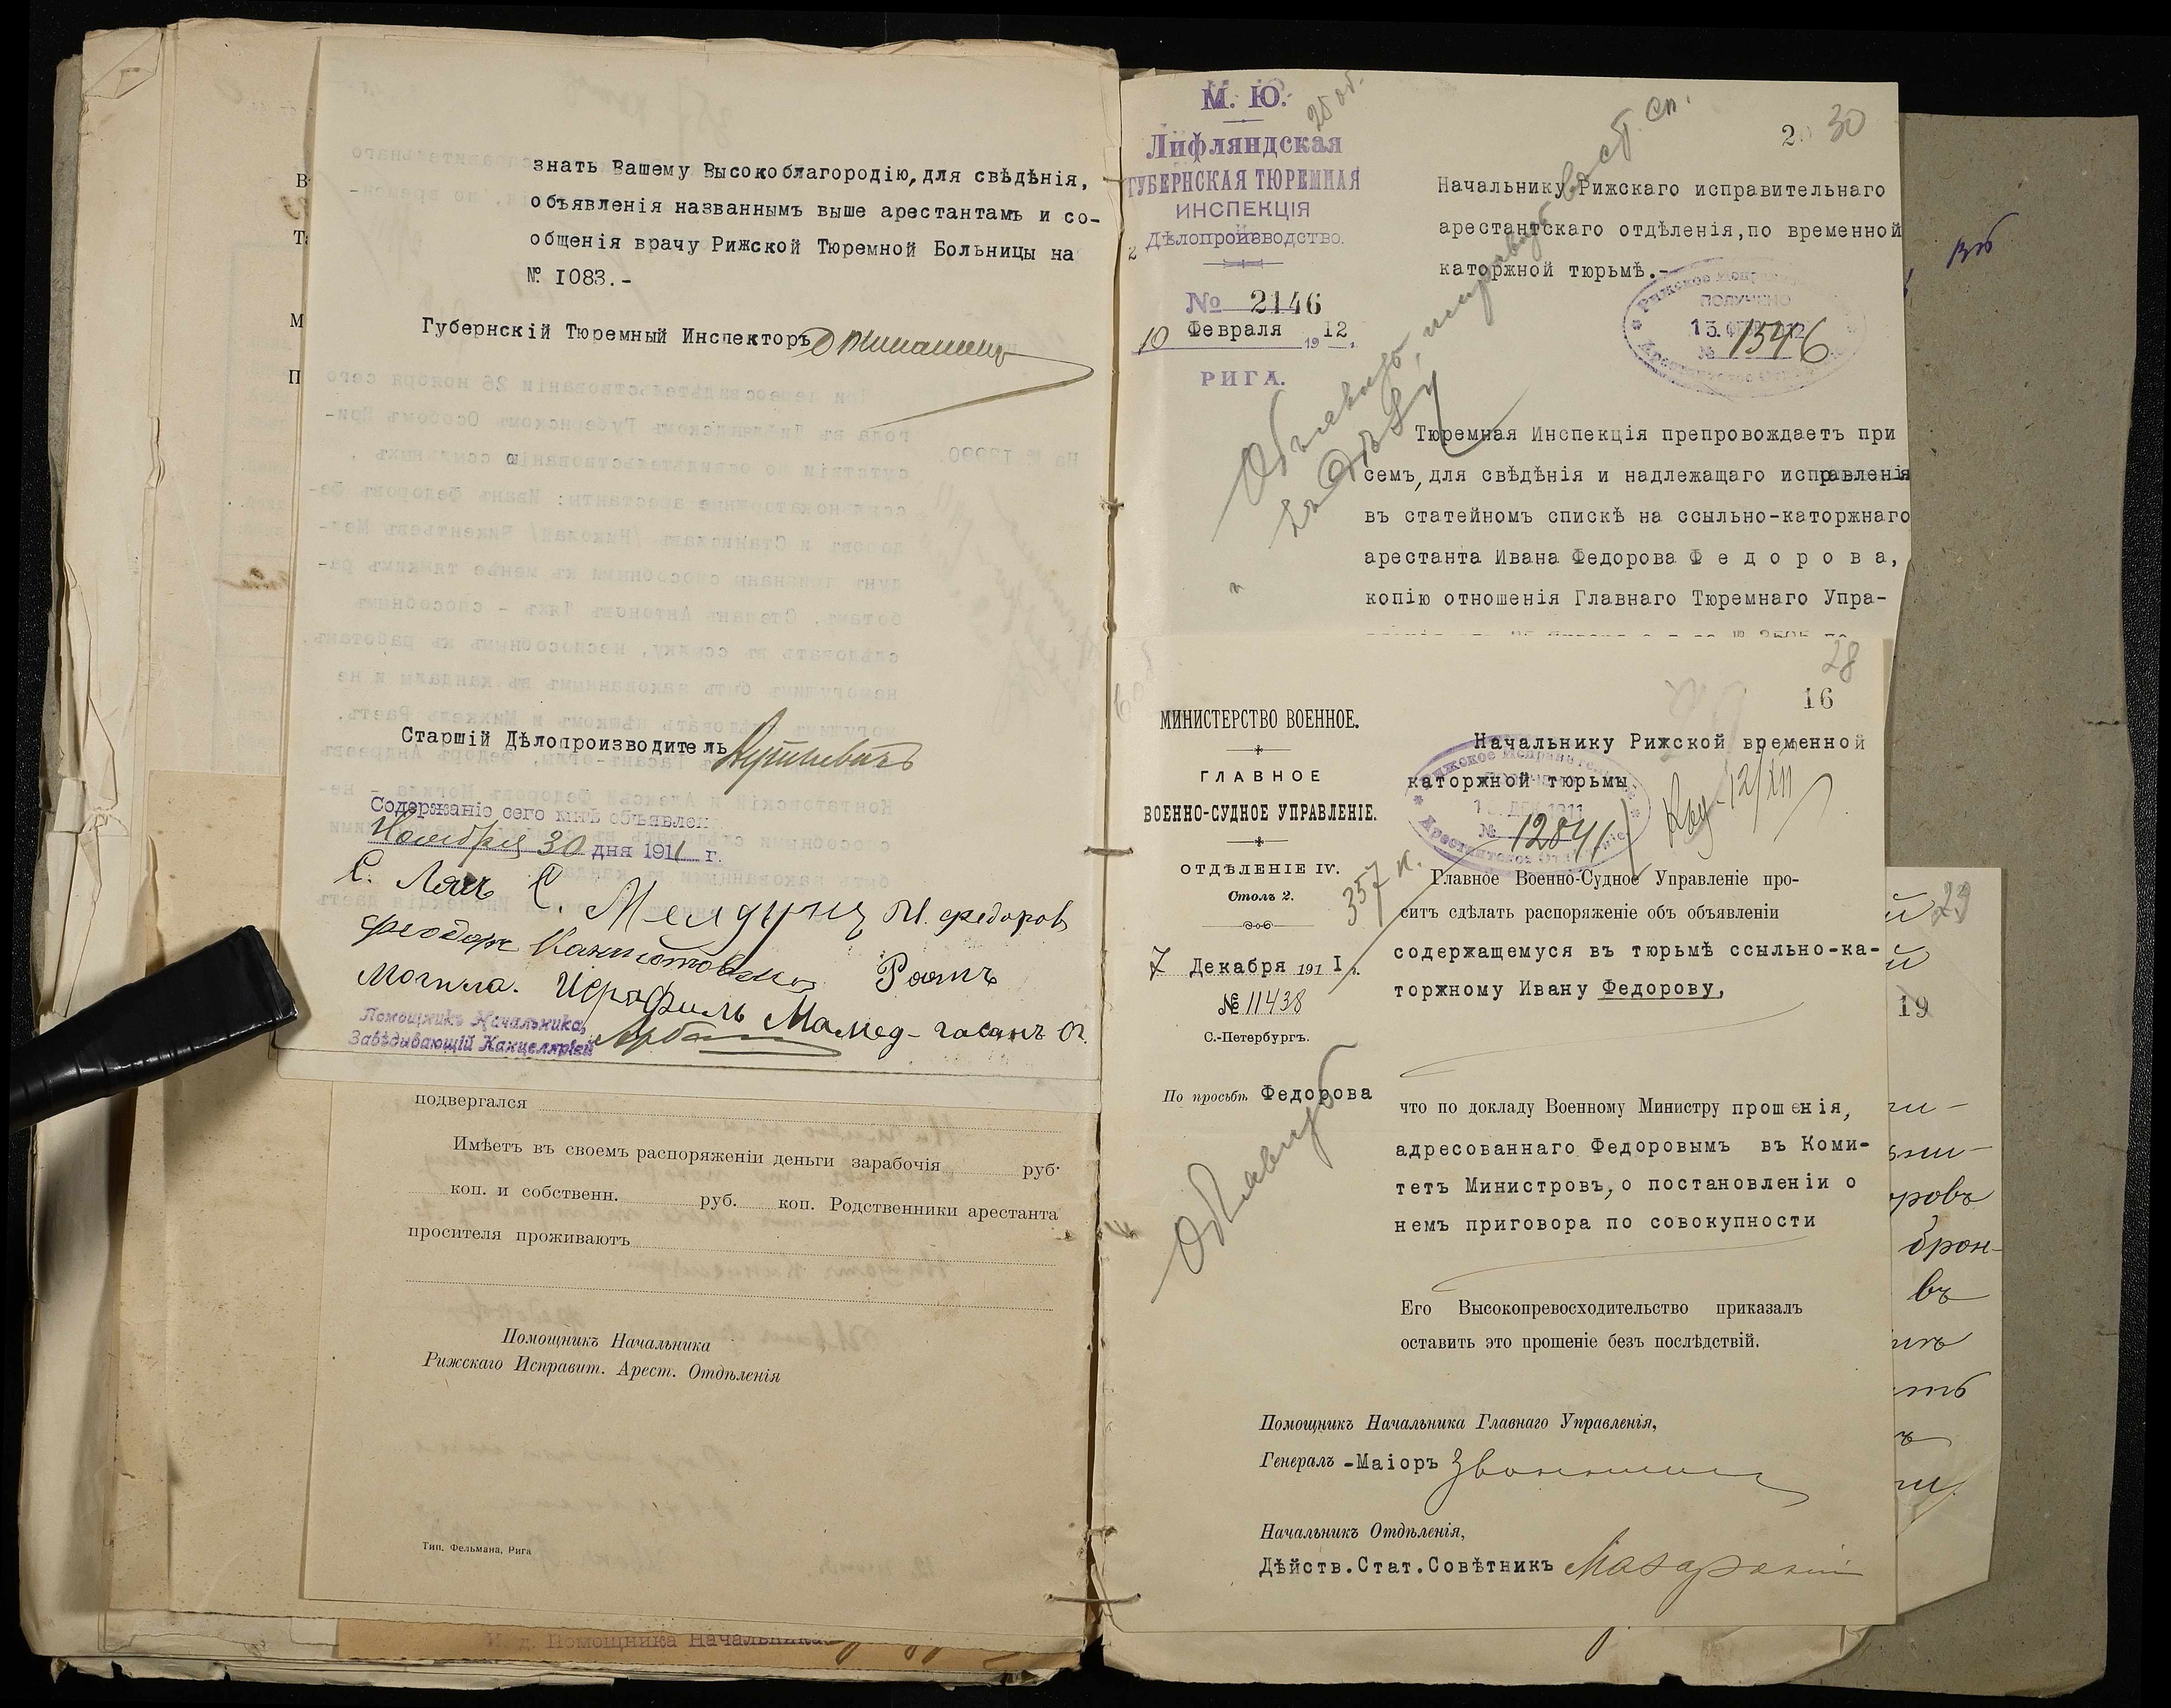 знать Вашему Высокоблагородію, для свѣдѣнія,
объявленія названнымъ выше арестантамъ и со-
общенія врачу Рижской Тюремной Больницы на
№ 1083.-
Губернскій Тюремный Инспекторъ
Старшій Дѣлопроизводитель
Содержаніе сего мнѣ объявлен
Ноября 30 дня 1911 г.
С. Ляхъ С. Мелдунъ И. Федоров
Феодоръ Роотъ
Могила. Исрафилъ Мамед-гасанъ О.
Помощникъ Начальника,
Завѣдывающій Канцеляріей
подвергался
Имѣетъ въ своемъ распоряженіи деньги зарабочія руб.
коп. и собственн. руб. коп. Родственники арестанта
просителя проживаютъ
Помощникъ Начальника
Рижскаго Исправит. Арест. Отдѣленія
Тип. Фельмана, Рига
И. д. Помощника Начальника
М. Ю.
Лифляндская
ГУБЕРНСКАЯ ТЮРЕМНАЯ
ИНСПЕКЦІЯ
Дѣлопроизводство.
№ 2146
10 Февраля 1912 г.
РИГА.
25 об.
30
Начальнику Рижскаго исправительнаго
арестантскаго отдѣленія, по временной
каторжной тюрьмѣ.-
ПОЛУЧЕНО
№ 1546
Объявить, исправить въ ст. сп.
Тюремная Инспекція препровождаетъ при
семъ, для свѣдѣнія и надлежащаго исправленія
въ статейномъ спискѣ на ссыльно-каторжнаго
арестанта Ивана Федорова Ф е д о р о в а,
копію отношенія Главнаго Тюремнаго Упра-
28
16
МИНИСТЕРСТВО ВОЕННОЕ.
ГЛАВНОЕ
ВОЕННО-СУДНОЕ УПРАВЛЕНІЕ.
ОТДѢЛЕНІЕ IV.
Столъ 2.
7 Декабря 1911 г.
№ 11438
С.-Петербургъ.
По просьбѣ Федорова
Объявить
Начальнику Рижской временной
каторжной тюрьмы
№ 12841
12/XII
357 к.
Главное Военно-Судное Управленіе про-
ситъ сдѣлать распоряженіе объ объявленіи
содержащемуся въ тюрьмѣ ссыльно-ка-
торжному Ивану Федорову,
что по докладу Военному Министру прошенія,
адресованнаго Федоровымъ въ Коми-
тетъ Министровъ, о постановленіи о
немъ приговора по совокупности
Его Высокопревосходительство приказалъ
оставить это прошеніе безъ послѣдствій.
Помощникъ Начальника Главнаго Управленія,
Генералъ-Маіоръ
Начальникъ Отдѣленія,
Дѣйств.Стат.Совѣтникъ
23
19